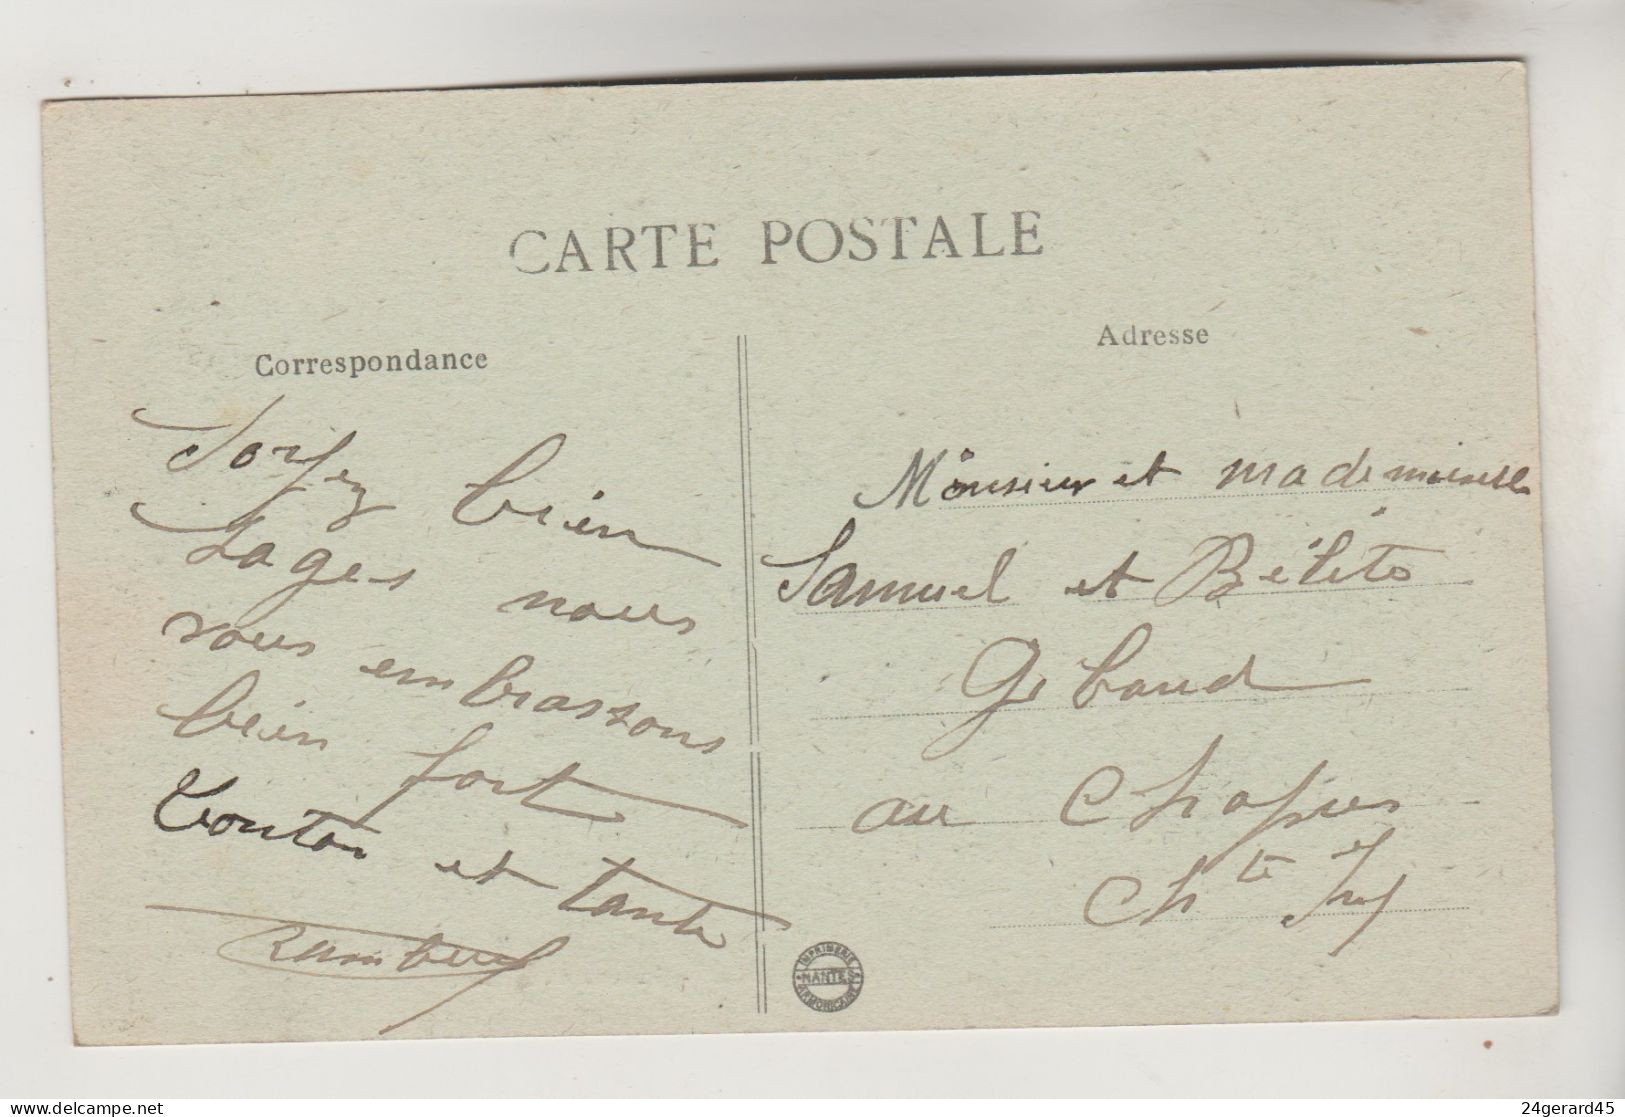 CARTE POSTALE
Correspondance
Soyez bien
sages nous
vous embrassons
bien fort
Tonton et tante
Adresse
Monsieur et mademoiselle
Samuel et Bébète
Gebaud
au Chapus
Chte Inf
IMPRIMERIE
NANTES
ARMORICAINE
24gerard45